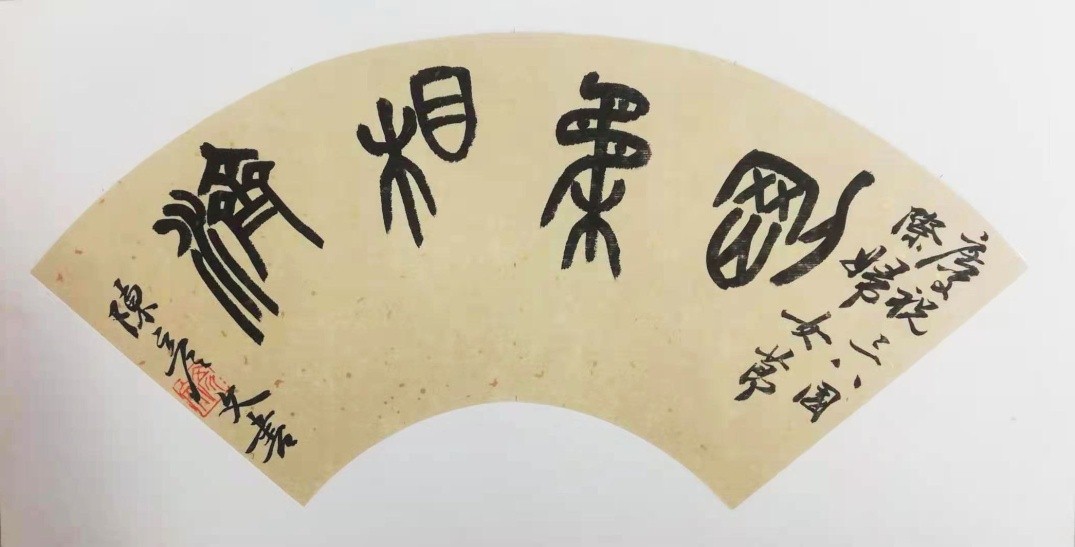 慶祝三八国
際婦女節
剛柔相濟
陳 彦文書